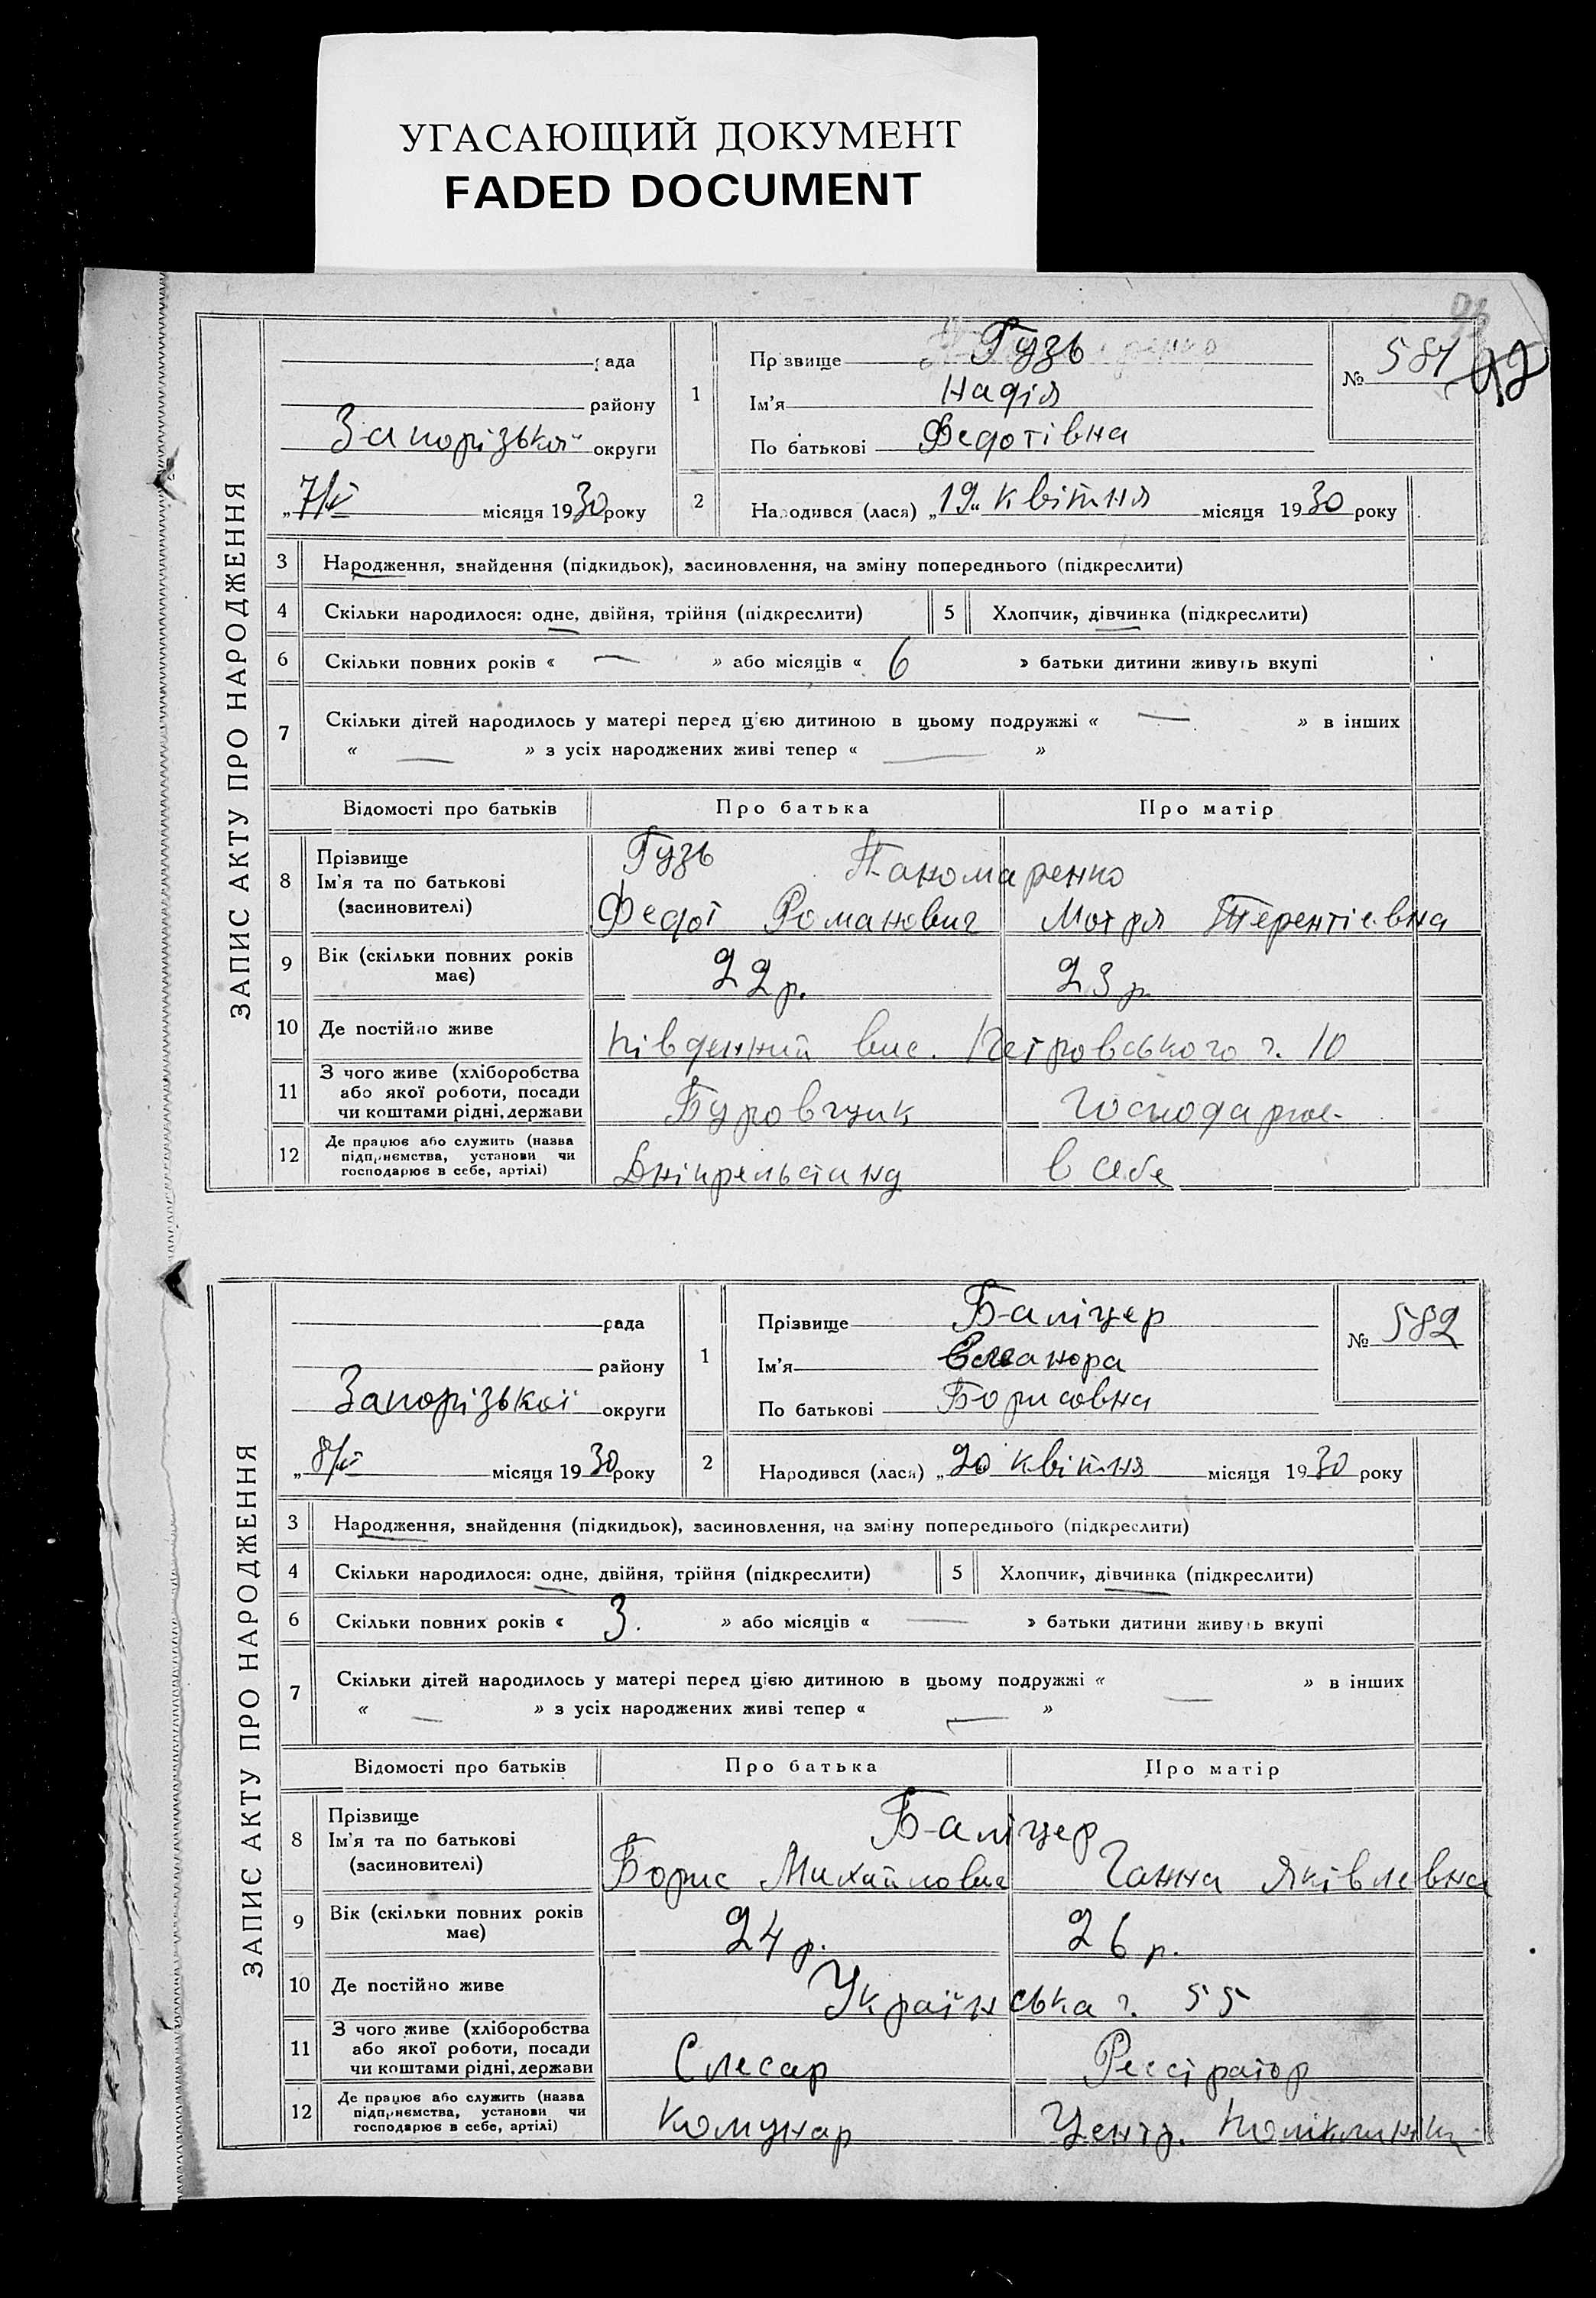 УГАСАЮЩИЙ ДОКУМЕНТ
FADED DOCUMENT
93
ЗАПИС АКТУ ПРО НАРОДЖЕННЯ
рада
району
Запорізької округи
„7/V місяця 1930 року
1
Прізвище Гузь
Ім'я Надія
По батькові Федотівна
№ 581
2
Народився (лася) „19„ квітня місяця 1930 року
3 Народження, знайдення (підкидьок), засиновлення, на зміну попереднього (підкреслити)
4 Скільки народилося: одне, двійня, трійня (підкреслити) 5 Хлопчик, дівчинка (підкреслити)
6 Скільки повних років « — » або місяців « 6 » батьки дитини живуть вкупі
7 Скільки дітей народилось у матері перед цією дитиною в цьому подружжі « — » в інших
« — » з усіх народжених живі тепер « — »
Відомості про батьків Про батька Про матір
8 Прізвище
Ім'я та по батькові
(засиновителі)
Гузь Паномаренко
Федот Романович Мотря Терентієвна
9 Вік (скільки повних років має) 22 р. 23 р.
10 Де постійно живе Південний вис. Петровського ч. 10
11 З чого живе (хліборобства
або якої роботи, посади
чи коштами рідні, держави
Буровщик Господарює
12 Де працює або служить (назва
підприємства, установи чи
господарює в себе, артілі)
Дніпрельстанд в себе
ЗАПИС АКТУ ПРО НАРОДЖЕННЯ
рада
району
Запорізької округи
„8/V місяця 1930 року
1
Прізвище Баліцер
Ім'я Елеанора
По батькові Борисовна
№ 582
2
Народився (лася) „20 квітня місяця 1930 року
3 Народження, знайдення (підкидьок), засиновлення, на зміну попереднього (підкреслити)
4 Скільки народилося: одне, двійня, трійня (підкреслити) 5 Хлопчик, дівчинка (підкреслити)
6 Скільки повних років « 3. » або місяців « — » батьки дитини живуть вкупі
7 Скільки дітей народилось у матері перед цією дитиною в цьому подружжі « — » в інших
« — » з усіх народжених живі тепер « — »
Відомості про батьків Про батька Про матір
8 Прізвище
Ім'я та по батькові
(засиновителі)
Баліцер
Борис Михайлович Ганна Яківлевна
9 Вік (скільки повних років має) 24 р. 26 р.
10 Де постійно живе Українська ч. 55
11 З чого живе (хліборобства
або якої роботи, посади
чи коштами рідні, держави
Слесар Реєстратор
12 Де працює або служить (назва
підприємства, установи чи
господарює в себе, артілі)
Комунар Центр. Поліклиніки